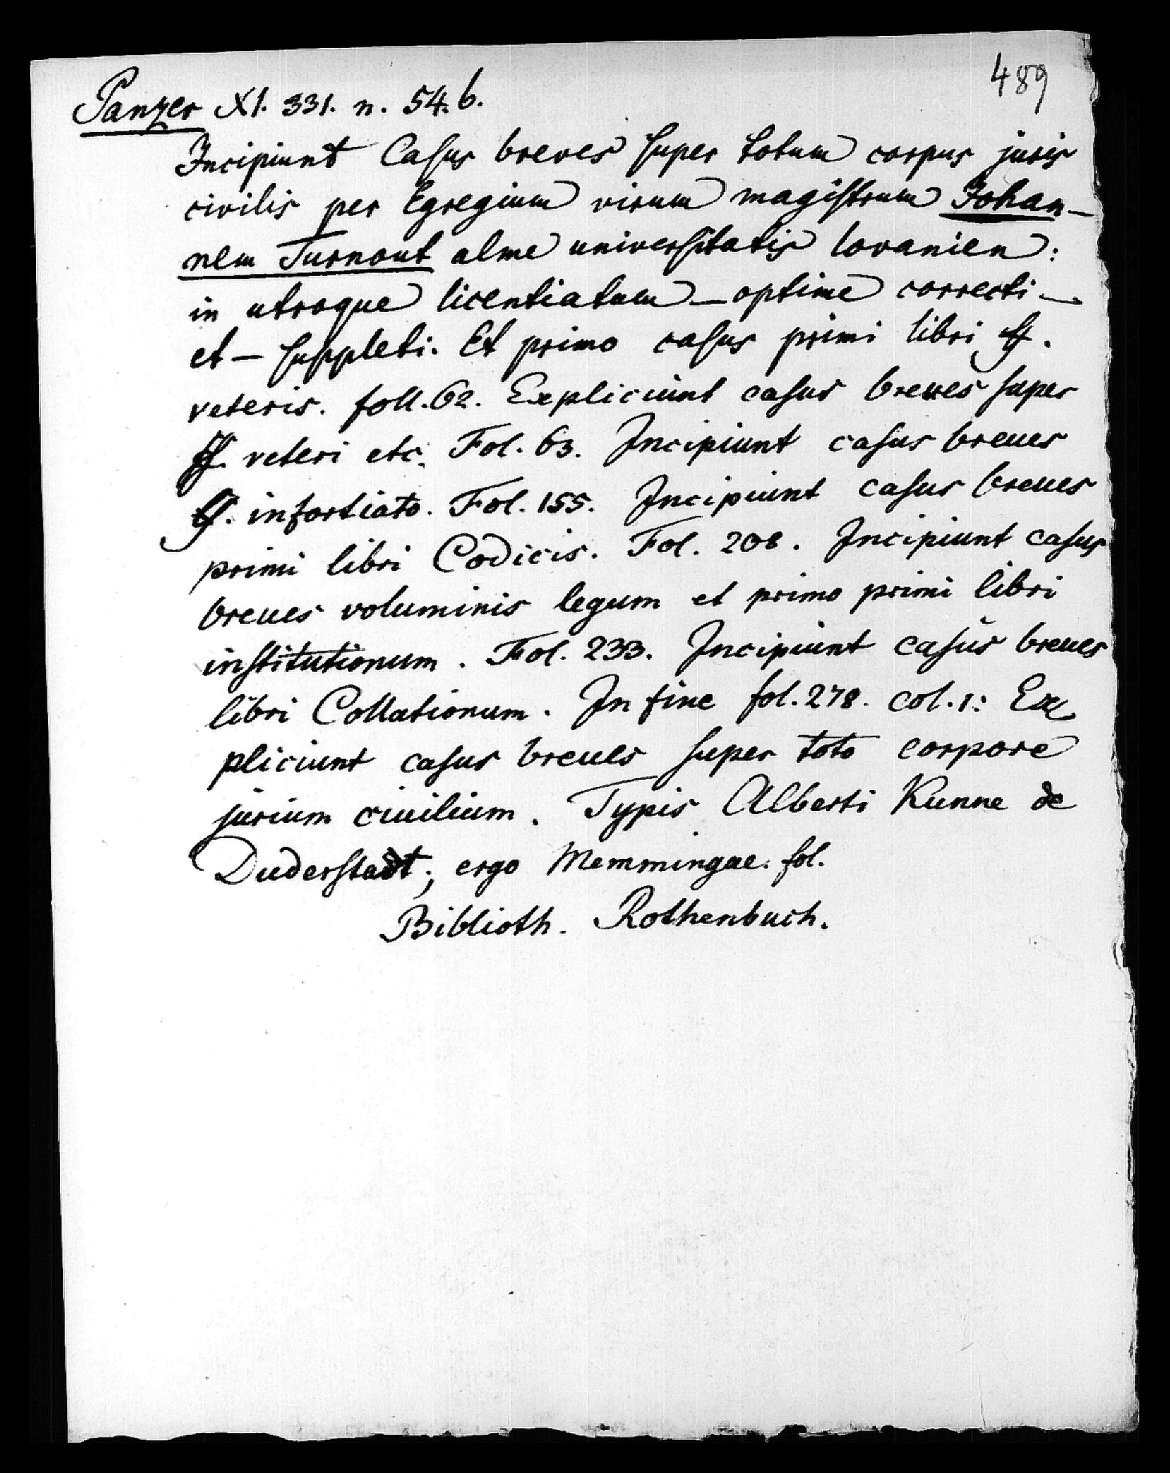 489
Panzer XI. 331. n. 54.b.
Incipiunt Casus breves super totum corpus juris
civilis per Egregium virum magistrum Johan-
nem Turnout alme universitatis lovanien:
in utroque licentiatum - optime correcti -
et - suppleti. Et primo casus primi libri ff.
veteris. foll. 62. Expliciunt casus breues super
ff. veteri etc. Fol. 63. Incipiunt casus breues
ff. infortiato. Fol. 155. Incipiunt casus breues
primi libri Codicis. Fol. 208. Incipiunt casus
breues voluminis legum et primo primi libri
institutionum. Fol. 233. Incipiunt casus breues
libri Collationum. In fine fol. 278. col. 1: Ex
pliciunt casus breues super toto corpore
jurium ciuilium. Typis Alberti Kunne de
Duderstadt; ergo Memmingae. fol.
Biblioth. Rothenbuch.